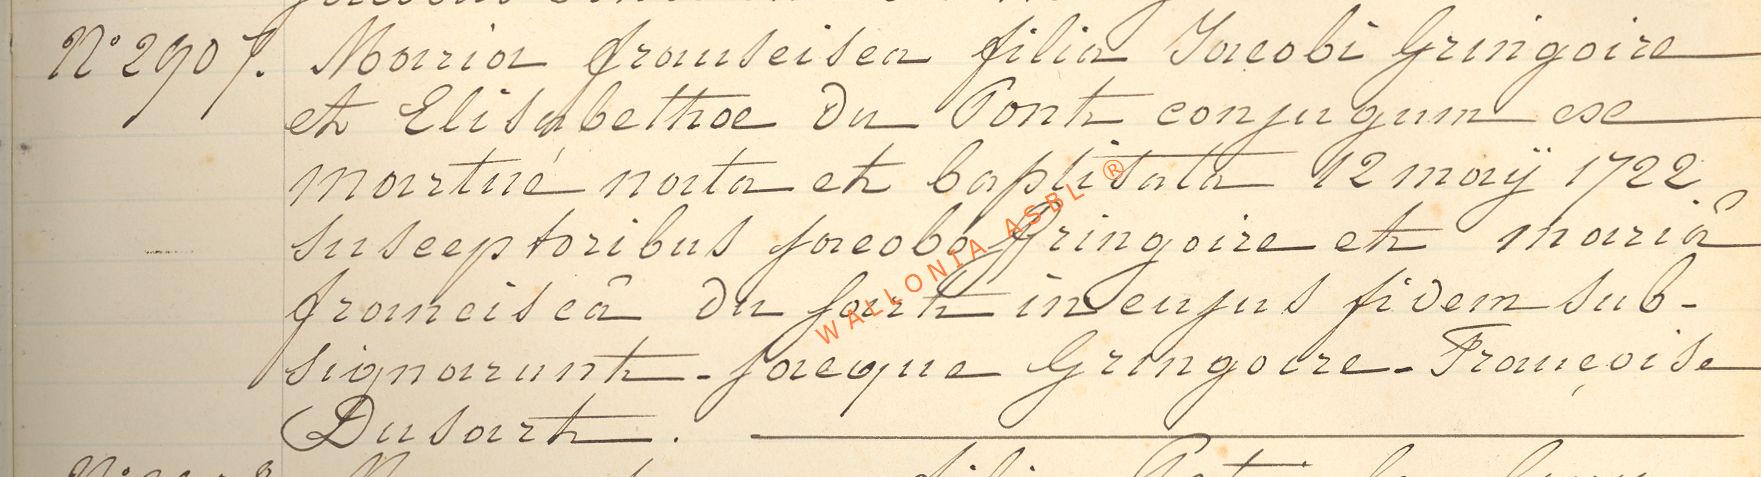 N° 2907. Maria franscisca filia Jacobi Gringoire
et Elisabethae Du Pont conjugum ex
martué nata et baptisata 12 maÿ 1722
susceptoribus jacobo Gringoire et mariâ
franciscâ du sart in cujus fidem sub-
signarunt - jacque Gringoire - Françoise
Dusart.
WALLONIA ASBL ®